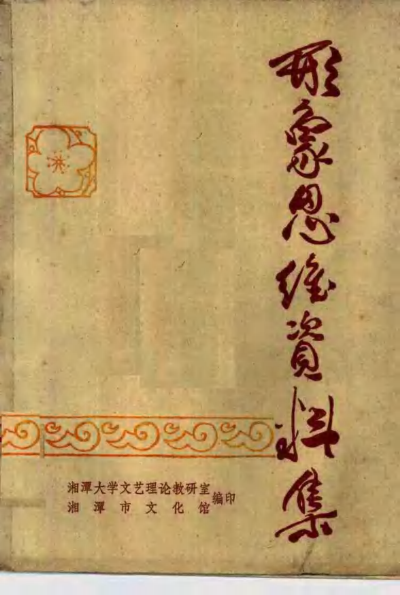 形象思维資料集
湘潭大学文艺理论教研室
湘潭市文化馆
编印